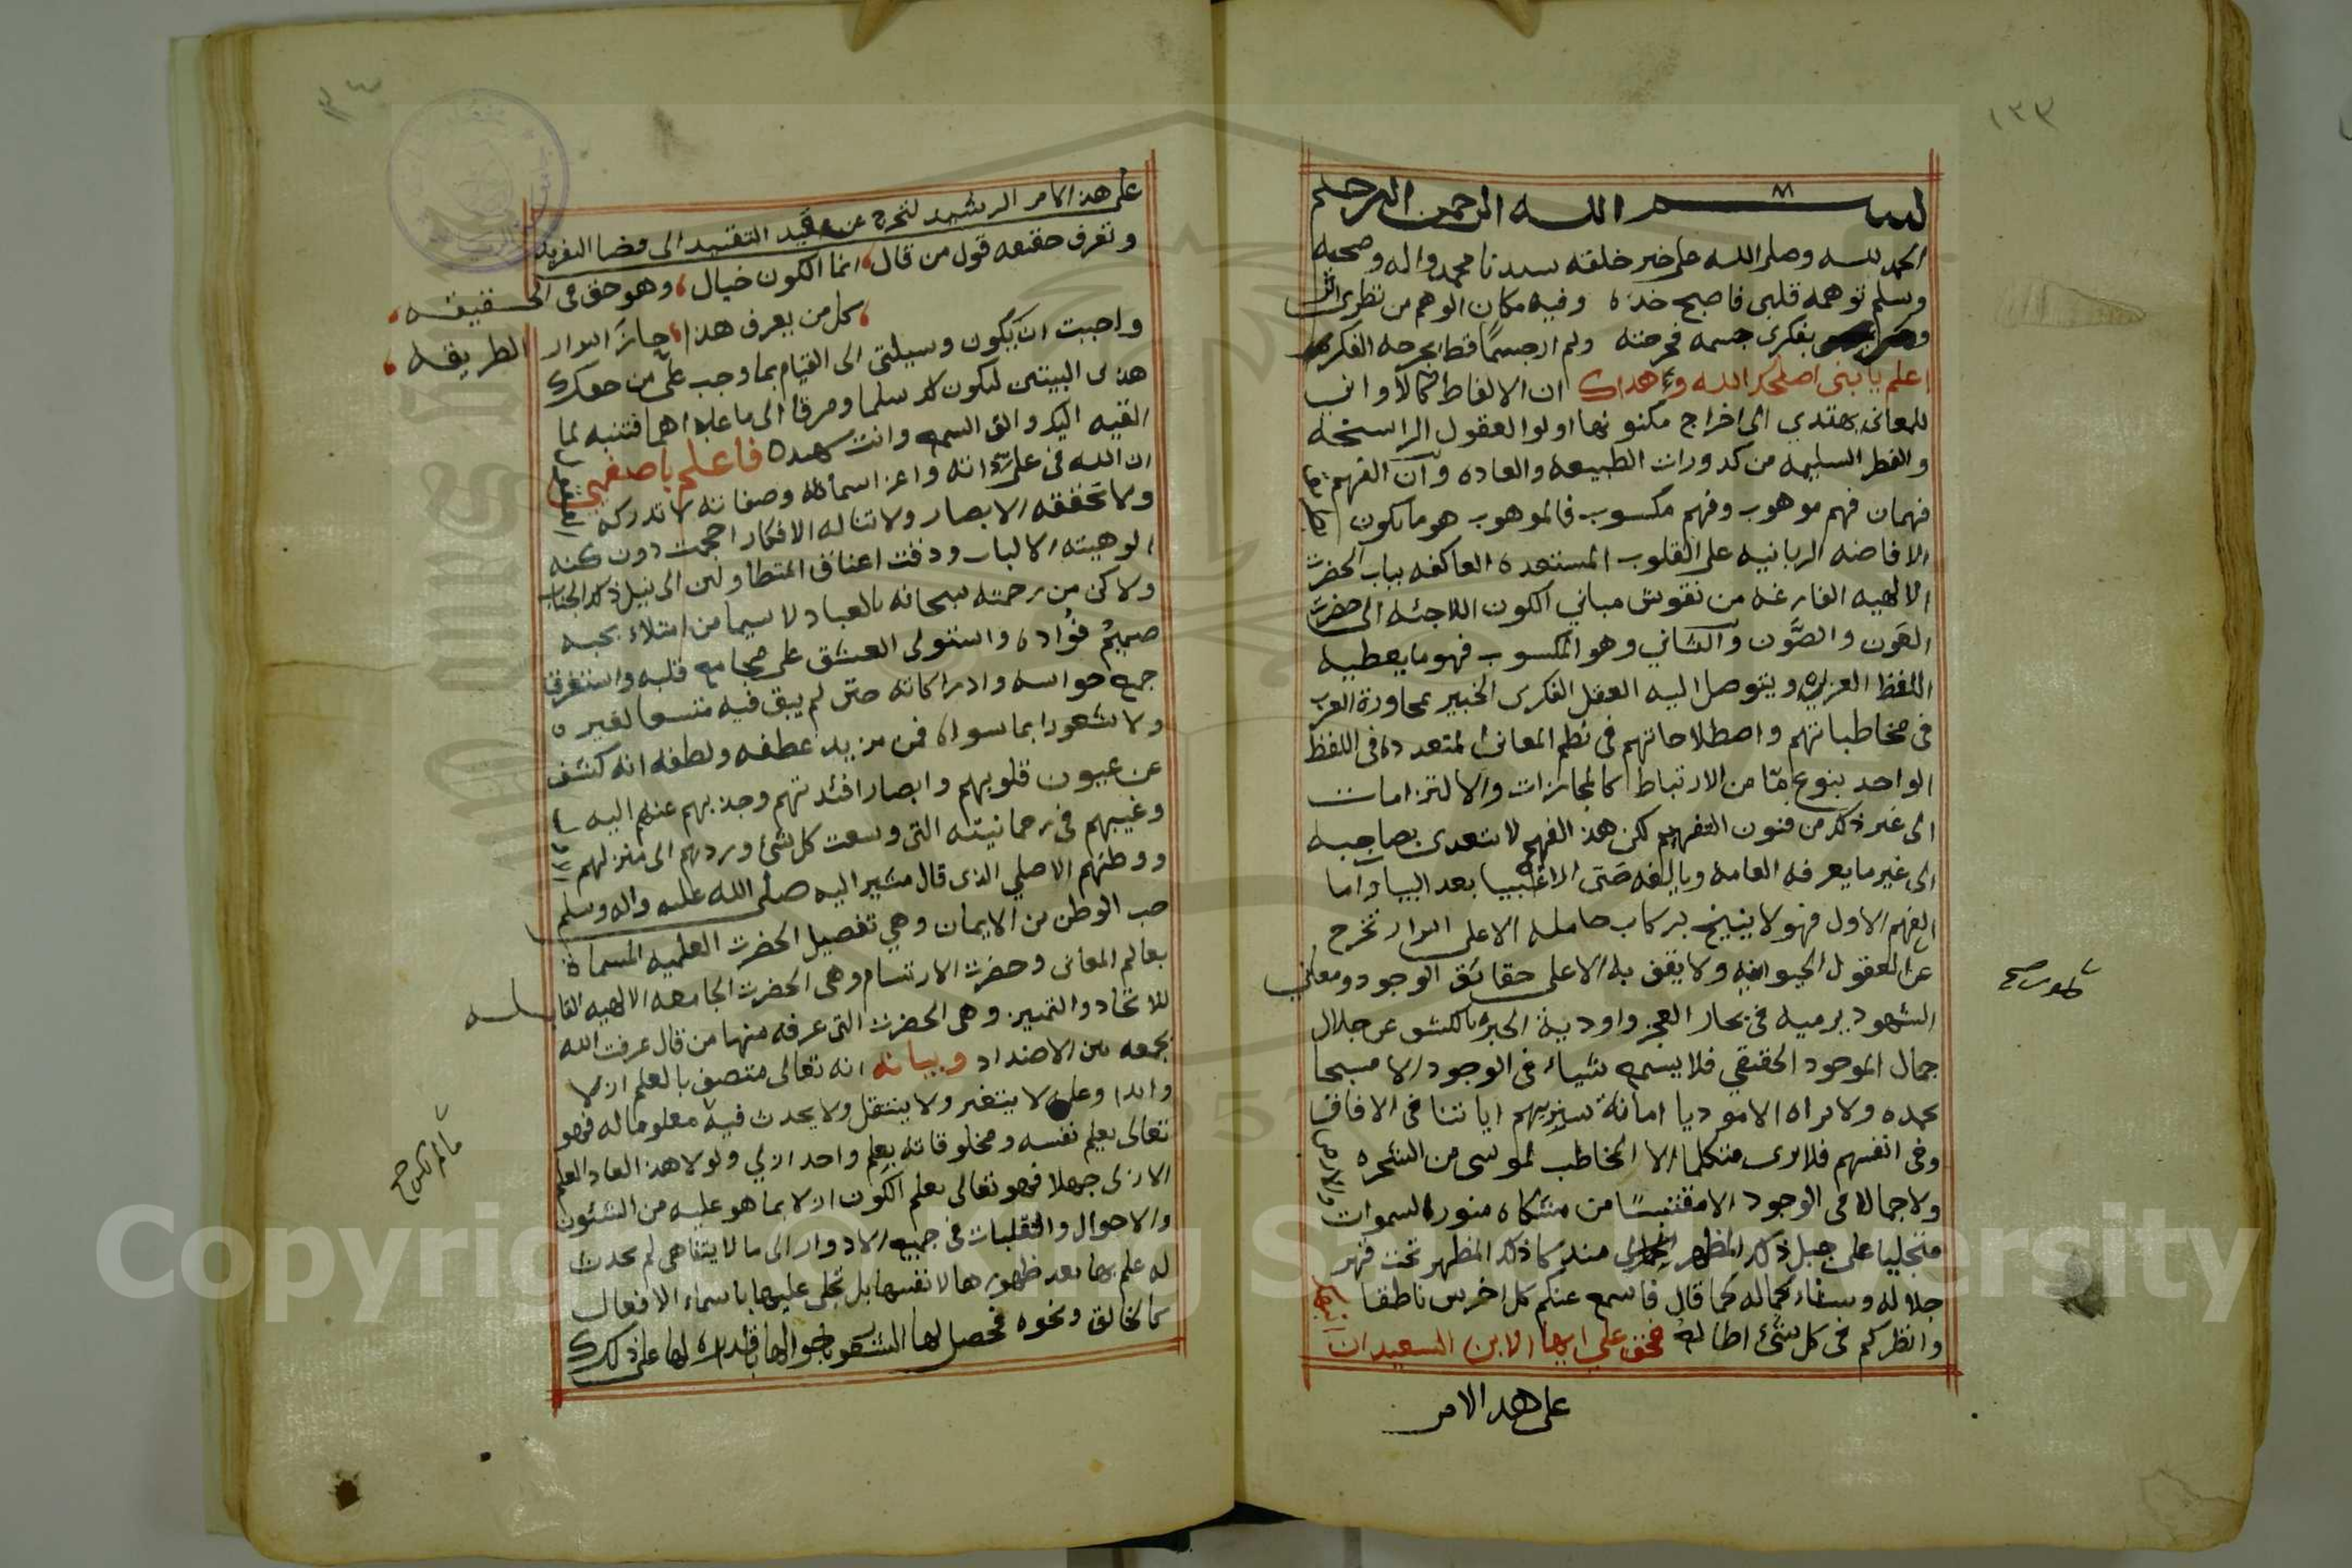 ١٣٣
بسم الله الرحمن الرحيم
الحمد لله وصلى الله على خير خلقه سيدنا محمد واله وصحبه
وسلم توهمه قلبي فاصبح خده وفيه مكان الوهم من نظري اثر
ومر بفكري جسمه فجرحته ولم ار جسما قط يجرحه الفكر
اعلم يا بني اصلحك الله وهداك ان الالفاظ كالاواني
للمعاني يهتدي الى اخراج مكنونها اولوا العقول الراسخه
والفطر السليمه من كدورات الطبيعه والعاده وان الفهم
فهمان فهم موهوب وفهم مكسوب فالموهوب هو ما يكون
الافاضه الربانيه على القلوب المستعده العاكفه بباب الحضرت
الالهيه الفارغه من نقوش مباني الكون اللاجئه الى حضرت
العون والصون والثاني وهو المكسوب فهو ما يعطيه
اللفظ العزيزه ويتوصل اليه العقل الفكري الخبير بمحاورة العرب
في مخاطباتهم واصطلاحاتهم في نظم المعاني المتعدده في اللفظ
الواحد بنوع ما من الارتباط كالمجازات والالتزامات
الى غير ذلك من فنون التفهيم لكن هذا الفهم لا يتعدى بصاحبه
الى غير ما يعرفه العامه ويالفه حتى الاغبيا بعد البيا واما
الفهم الاول فهو لا ينيخ بركاب حامله الا على اسرار تخرج
عن العقول الحيوانيه ولا يقف به الا على حقائق الوجود ومعاني
الشهود يرميه في بحار العجز واودية الحيره بالكشف عن جلال
جمال الموجود الحقيقي فلا يسمع شياء في الوجود الا مسبحا
بحمده ولا يراه الا موديا امانة سنريهم اياتنا في الافاق
وفي انفسهم فلا يرى متكلما الا المخاطب لموسى من الشجره
ولا جمالا في الوجود الا مقتبسا من مشكاه منور السموات
متجليا على جبل ذلك المظهر مندكا ذلك المظهر تحت قهر
جلاله وسناء جماله كما قال فاسمع عنكم كل اخرس ناطقا
وانظركم في كل شئ اطالعه فحق علي ايها الابن السعيد ان
على هذا الامر
على هذا الامر الرشيد لتخرج عن قيد التقييد الى فضا التفريد
وتعرف حقيقه قول من قال انما الكون خيال وهو حق في الحقيقه
كل من يعرف هذا حاز اسرار الطريقه
واحببت ان يكون وسيلتي الى القيام بما وجب علي من حقك
هذين البيتين ليكون لك سلما ومرقا الى ما علاهما فتنبه لما
القيه اليك والق السمع وانت شهيد فاعلم يا صفيي
ان الله في علي ذاته واعز اسمائه وصفاته لا تدركه
ولا تحققه الابصار ولا تناله الافكار احجمت دون كنه
الوهيته الالباب ودقت اعناق المتطاولين الى نيل ذلك الجناب
ولاكن من رحمته سبحانه بالعباد لا سيما من امتلاء بحبه
صميم فؤاده واستولى العشق على مجامع قلبه واستغرق
جميع حواسه وادراكاته حتى لم يبق فيه متسعا لغيره
ولا شعورا بما سواه فمن مزيد عطفه ولطفه انه كشف
عن عيون قلوبهم وابصار افئدتهم وجذبهم عنهم اليه
وغيبهم في رحمانيته التي وسعت كل شئ وردهم الى منزلهم
ووطنهم الاصلي الذي قال مشيرا اليه صلى الله عليه واله وسلم
حب الوطن من الايمان وهي تفصيل الحضرت العلميه المسماة
بعالم المعاني وحضرت الارتسام وهي الحضرت الجامعه الالهيه القابله
للاتحاد والتمييز وهي الحضرت التي عرفه منها من قال عرفت الله
بجمعه بين الاضداد وبيانه انه تعالى متصف بالعلم ازلا
وابدا وعلمه لا يتغير ولا ينتقل ولا يحدث فيه معلوما له فهو
تعالى يعلم نفسه ومخلوقاته بعلم واحد ازلي ولولا هذا لعاد العلم
الازلي جهلا فهو تعالى يعلم الكون ازلا بما هو عليه من الشئون
والاحوال والتقلبات في جميع الادوار الى ما لا يتناهى لم يحدث
له علم بها بعد ظهورها لانفسها بل تجلى عليها باسماء الافعال
كالخالق ونحوه فحصل لها الشعور باحوالها باقداره لها على ذلك
Copyright © King Saud University